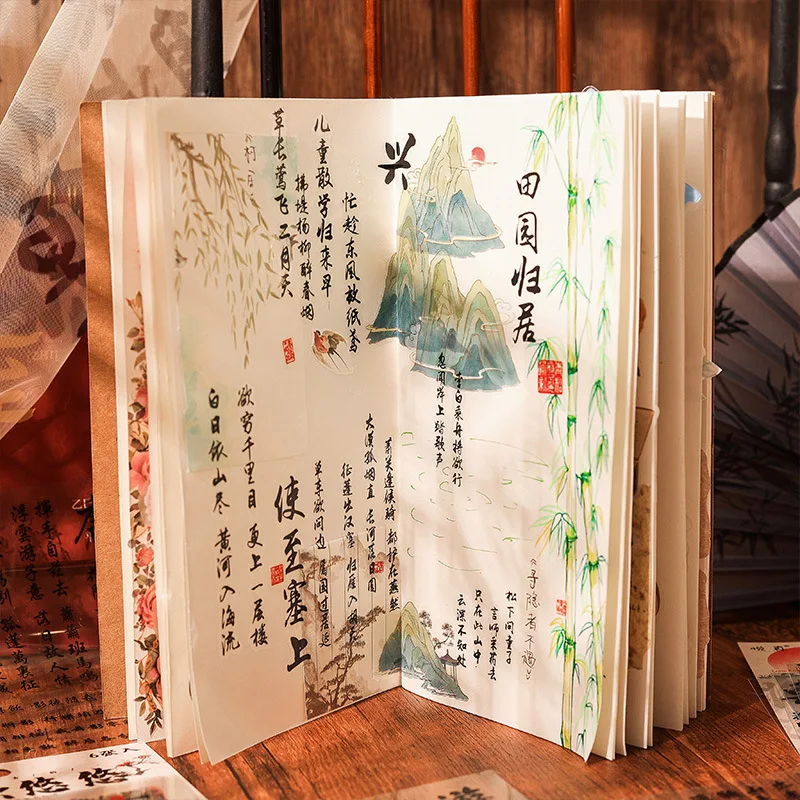 《村
草长莺飞二月天
拂堤杨柳醉春烟
儿童散学归来早
忙趁东风放纸鸢
白日依山尽 黄河入海流
欲穷千里目 更上一层楼
使至塞上
单车欲问边 属国过居延
征蓬出汉塞 归雁入胡天
大漠孤烟直 长河落日圆
萧关逢候骑 都护在燕然
兴
田园归居
李白乘舟将欲行
忽闻岸上踏歌声
《寻隐者不遇》
松下问童子
言师采药去
只在此山中
云深不知处
挥手自兹去 萧萧班马鸣
浮云游子意 落日故人情
孤蓬万里征
6张入
悠悠